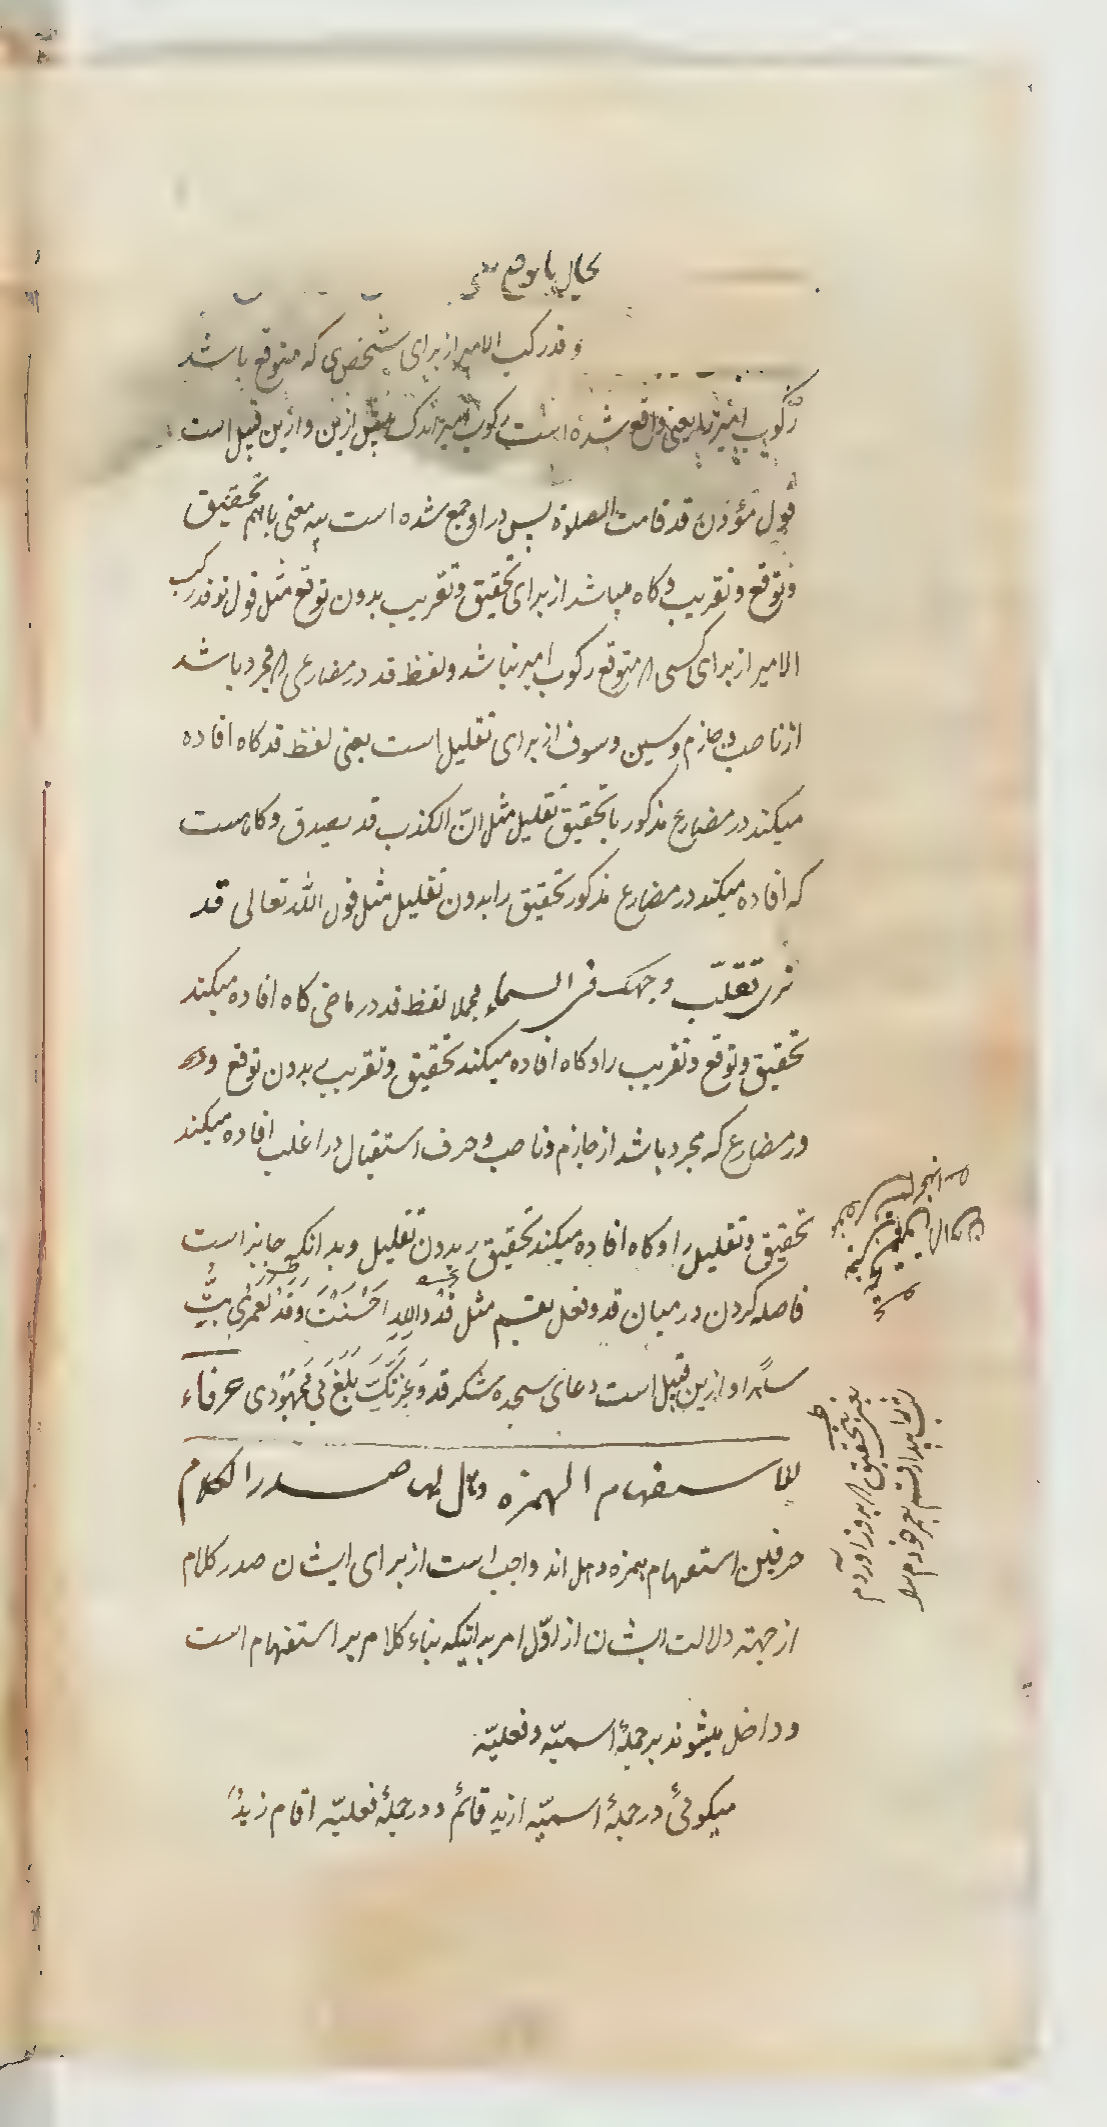 بحال با توقع
و قد رکب الامیر از برای شخصی که متوقع باشد
رکوب امیر را یعنی واقع شده است رکوب امیر اندک قبل ازین و ازین قبیل است
قول مؤذن قد قامت الصلاة پس در او جمع شده است سه معنی باهم تحقیق
و توقع و تقریب و کاه میباشد از برای تحقیق و تقریب بدون توقع مثل قول تو قد رکب
الامیر از برای کسی که متوقع رکوب امیر نباشد و لفظ قد در مضارعی که مجرد باشد
از ناصب و جازم و سین و سوف از برای تقلیل است یعنی لفظ قد کاه افاده
میکند در مضارع مذکور با تحقیق تقلیل مثل انّ الکذب قد یصدق و کاه هست
که افاده میکند در مضارع مذکور تحقیق را بدون تقلیل مثل قول الله تعالی قد
نری تقلّب وجهک فی السماء مجملا لفظ قد در ماضی کاه افاده میکند
تحقیق و توقع و تقریب را و کاه افاده میکند تحقیق و تقریب بدون توقع و
در مضارع که مجرد باشد از جازم و ناصب و حرف استقبال در اغلب افاده میکند
تحقیق و تقلیل را و کاه افاده میکند تحقیق بدون تقلیل و بدانکه جایز است
فاصله کردن در میان قد و فعل بقسم مثل قَدْ واللهِ اَحْسَنْتَ وَقَدْ لَعَمْرُی بِتُّ
ساهرًا و ازین قبیل است دعای سجده شکر قد وَعِزَّتِکَ بَلَغَ بی مَجْهُودی حرفاء
للاستفهام الهمزه و هل لهما صدر الکلام
حرفین استفهام همزه و هل اند واجب است از برای ایشان صدر کلام
از جهته دلالت ایشان از اوّل امر بر اینکه بناء کلام بر استفهام است
و داخل میشوند بر جملهٔ اسمیّه و فعلیّه
میکوئی در جملهٔ اسمیّه ازید قائمٌ و در جملهٔ فعلیّه اقام زیدٌ
یعنی بتحقیق که بروز آوردم